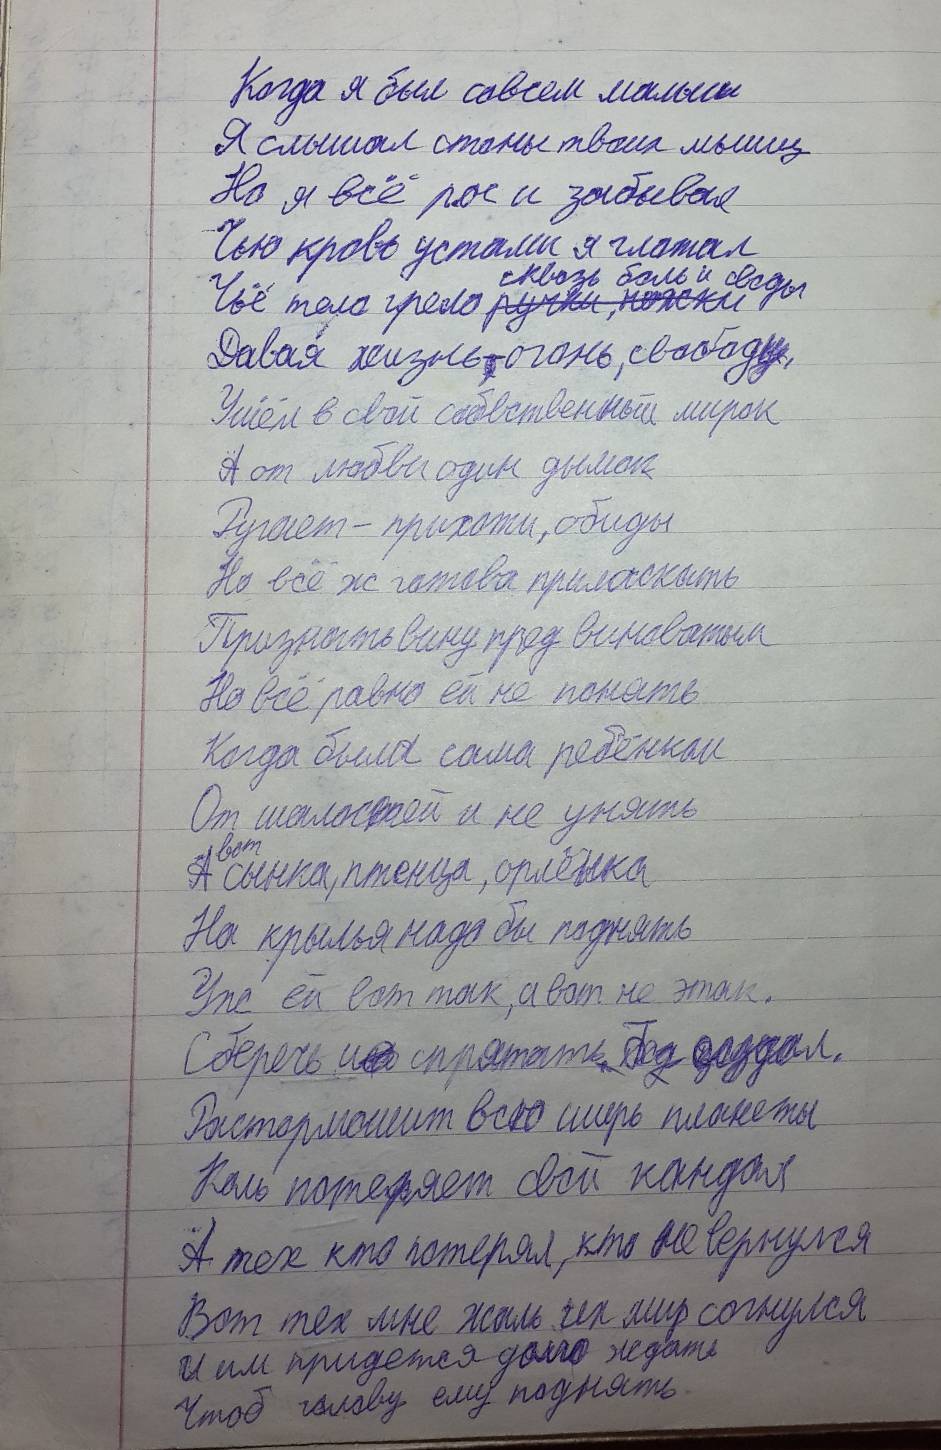 Когда я был совсем малыш
Я слышал стоны твоих мышц
Но я всё рос и забывая
Чью кровь устами я глотал
сквозь боль и своды
Чьё тело грело ручки, ножки
Давая жизнь, огонь, свободу,
Ушёл в свой собственный мирок
А от любви один дымок
Ругает - прихоти, обиды
Но всё ж готова приласкать
Признать вину пред виноватым
Но всё равно ей не понять
Когда была сама ребёнком
От шалостей и не унять
вот
А сынка, птенца, орлёнка
На крылья надо бы поднять
Уж ей вот так, а вот не этак.
Сберечь и спрятать. Под
Растормошит всю ширь планеты
Коль потеряет свой кандал
А тех кто потерял, кто не вернулся
Вот тех мне жаль их мир согнулся
И им придется долго ждать
Чтоб голову ему поднять